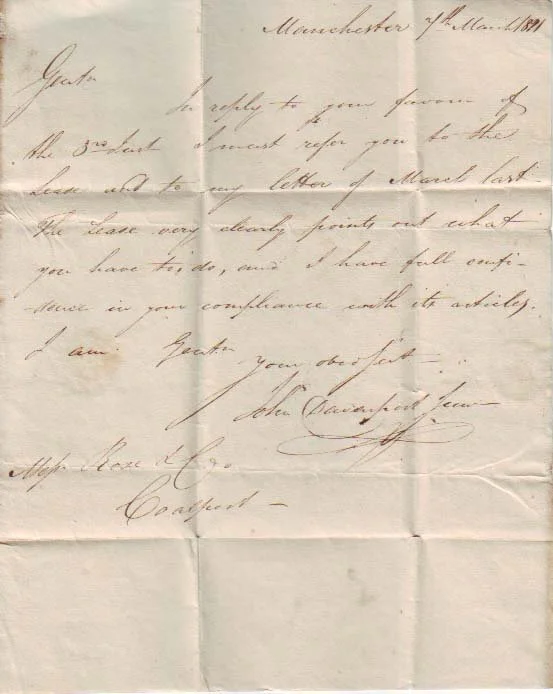 Manchester 7th March 1821
Gentn
In reply to your favour of
the 3rd Inst I must refer you to the
Lease and to my letter of March last
The Lease very clearly points out what
you have to do, and I have full confi-
-dence in your compliance with its articles.
I am Gentn
your obdt Sert
John Davenport Junr
Messrs Rose & Co
Coalport